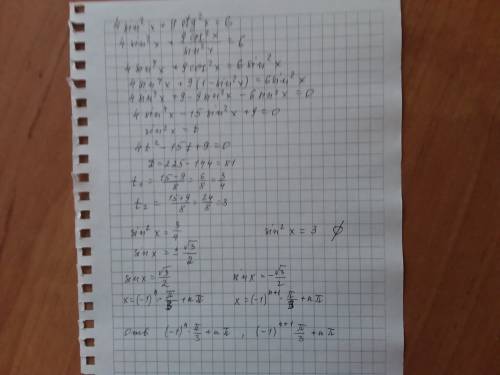 4 sin² x + 9 ctg² x = 6
4 sin² x + 9 cos² x / sin² x = 6
4 sin⁴ x + 9 cos² x = 6 sin² x
4 sin⁴ x + 9(1 - sin² x) = 6 sin² x
4 sin⁴ x + 9 - 9 sin² x - 6 sin² x = 0
4 sin⁴ x - 15 sin² x + 9 = 0
sin² x = t
4t² - 15t + 9 = 0
D = 225 - 144 = 81
t₁ = (15-9)/8 = 6/8 = 3/4
t₂ = (15+9)/8 = 24/8 = 3
sin² x = 3/4 sin² x = 3 ∅
sin x = ± √3/2
sin x = √3/2 sin x = -√3/2
x = (-1)ⁿ · π/3 + nπ x = (-1)ⁿ⁺¹ · π/3 + nπ
Отв (-1)ⁿ · π/3 + nπ , (-1)ⁿ⁺¹ π/3 + nπ